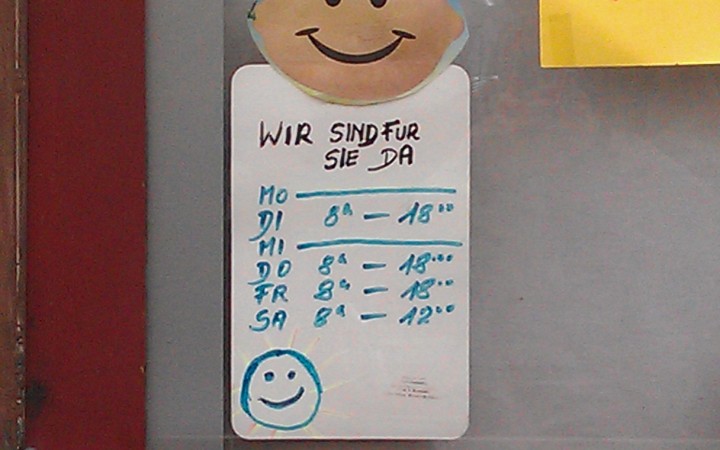 WIR SIND FUR
SIE DA
MO
DI 8ʰ — 18⁰⁰
MI
DO 8ʰ — 18⁰⁰
FR 8ʰ — 18⁰⁰
SA 8ʰ — 12⁰⁰